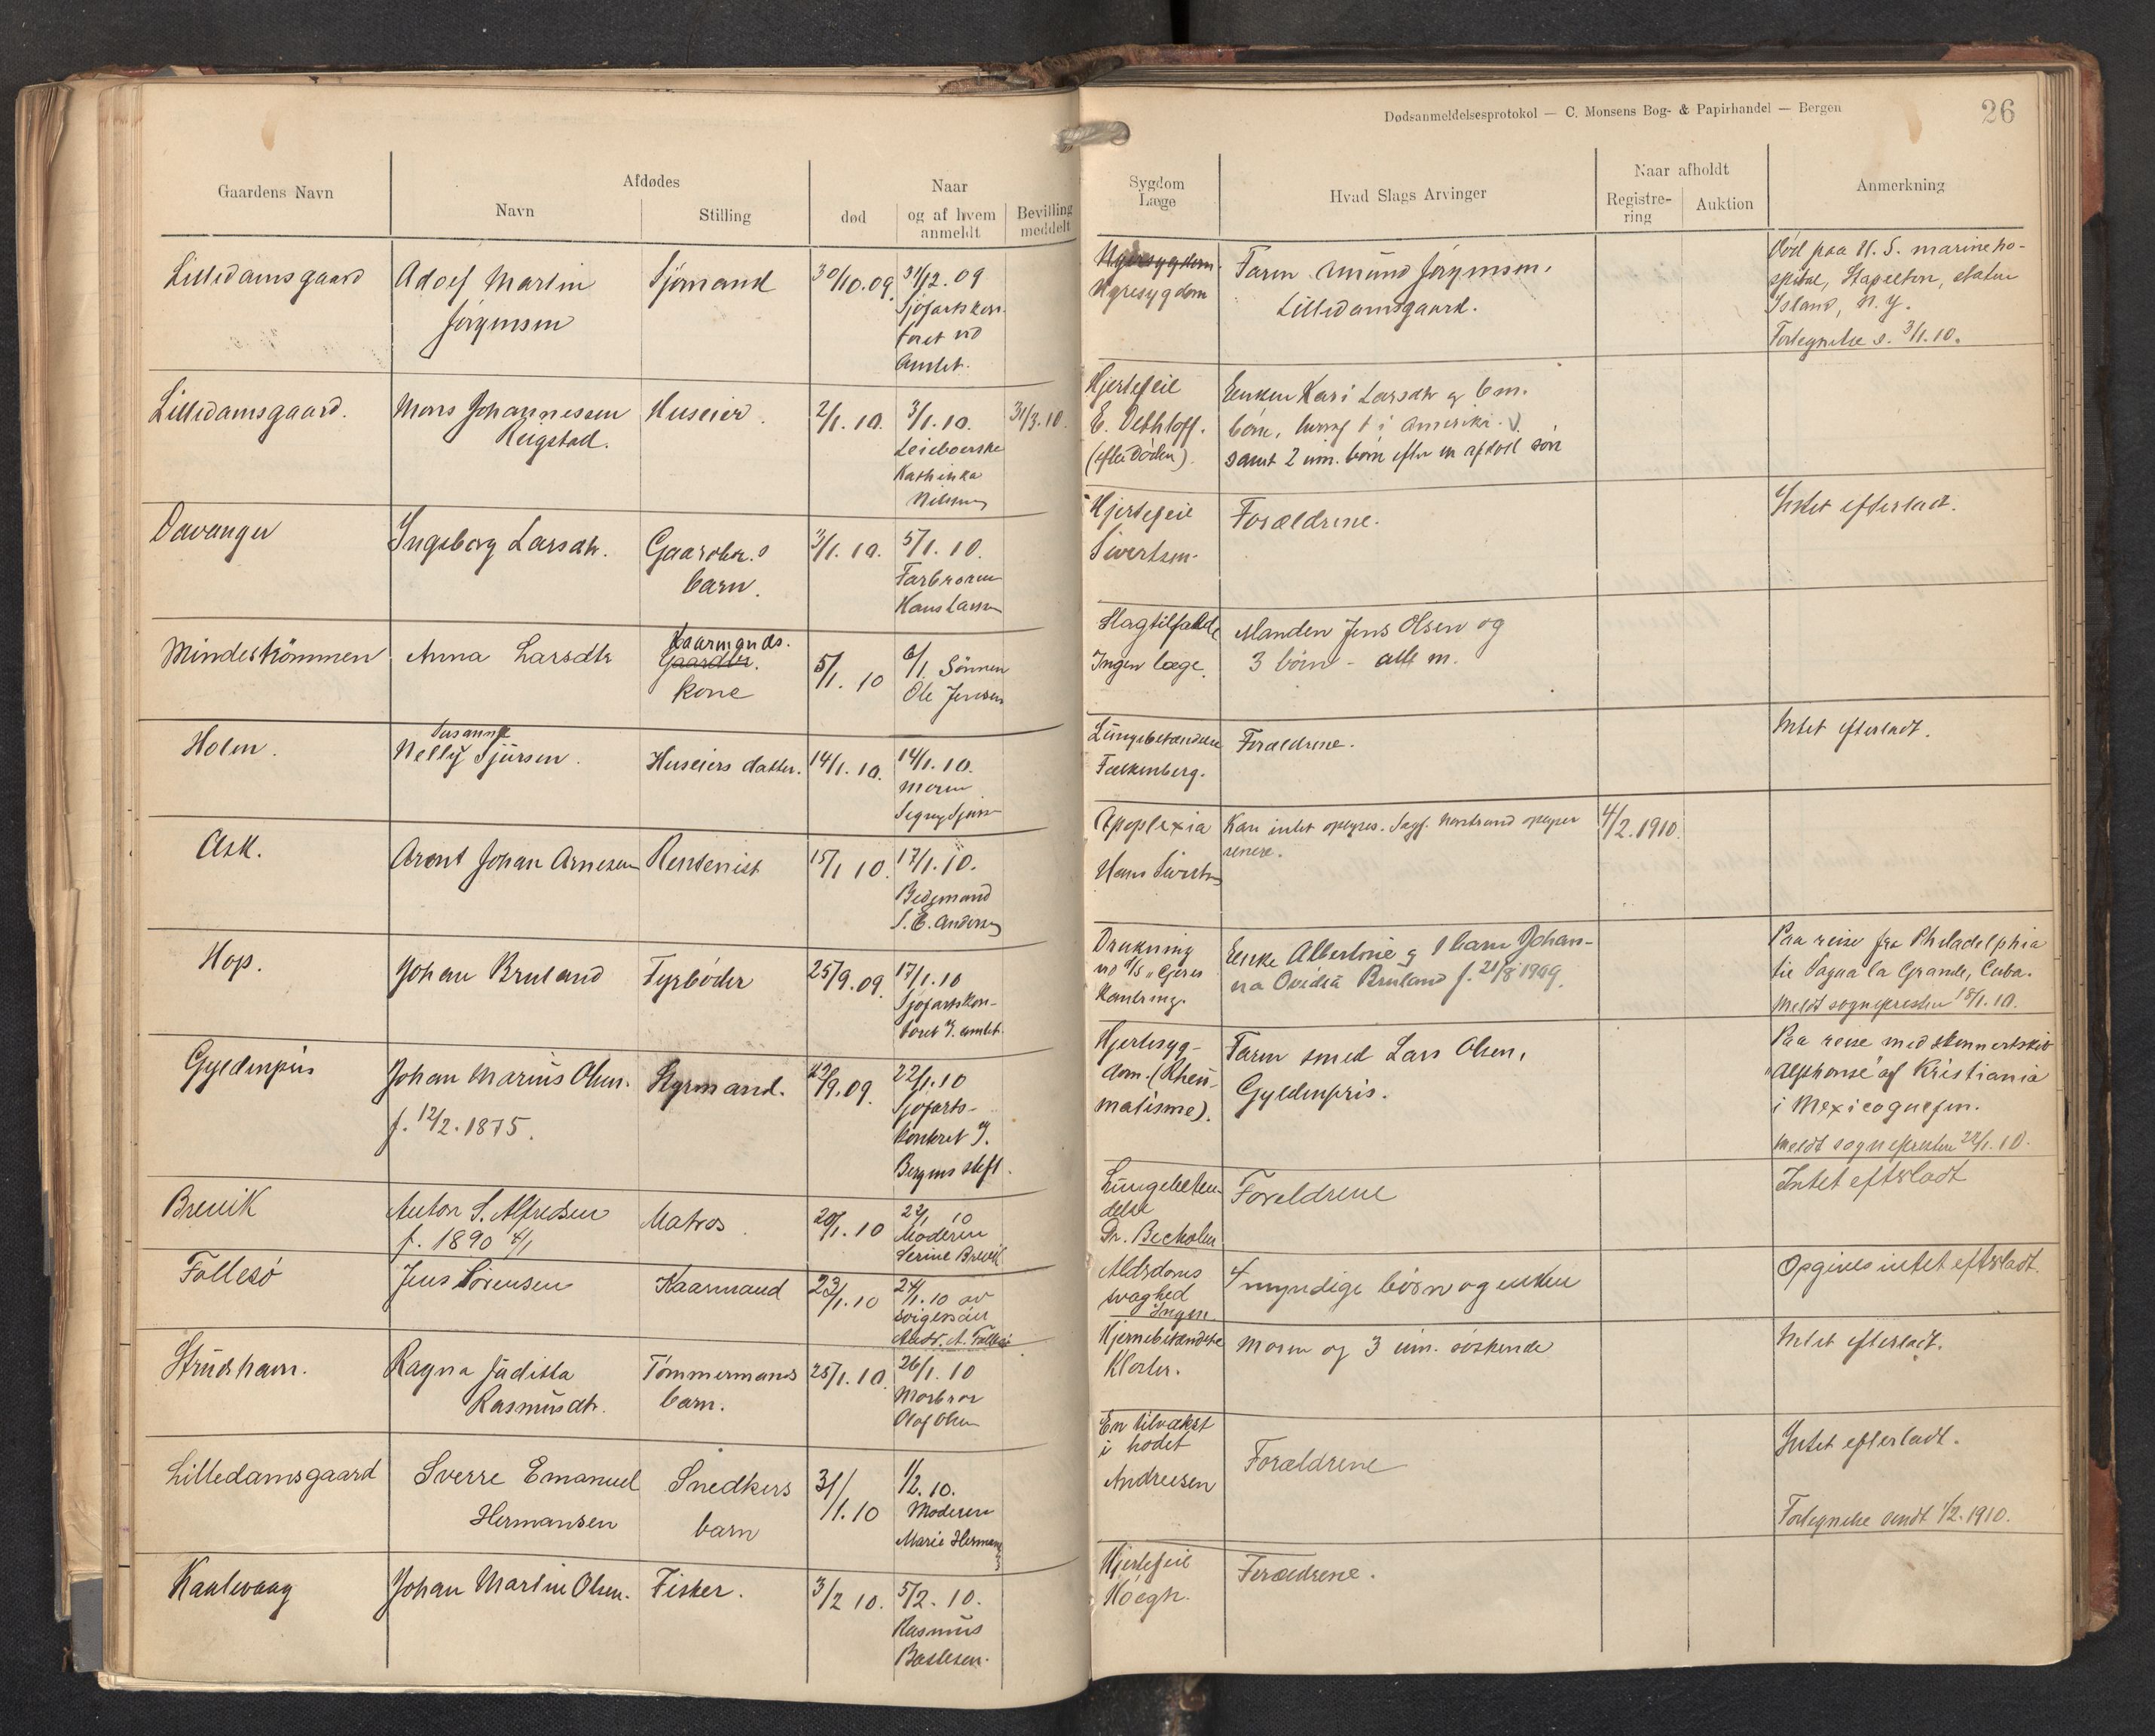 Dødsanmeldelsesprotokol — C. Monsens Bog- & Papirhandel — Bergen
26
Gaardens Navn
Afdødes
Navn
Stilling
Naar
død
og af hvem
anmeldt
Bevilling
meddelt
Sygdom
Læge
Hvad Slags Arvinger
Naar afholdt
Registre-
ring
Auktion
Anmerkning
Lilledamsgaard
Adolf Martin
Jørgensen
Sjömand
30/10.09.
31/12.09
Sjöfartskon-
toret ved
Amtet.
Nyresygdom.
Nyresygdom
Faren Jörgensen,
Lilledamsgaard.
Död paa U. S. marineho-
spital, Stapelton, staten
Island, N. Y.
Fortegnelse s. 3/1.10.
Lilledamsgaard.
Mons Johannesen
Reigstad.
Huseier.
2/1.10.
3/1.10.
Leieboerske
Kathinka
Nilsen
31/3.10.
Hjertefeil
E. Dethloff.
(efter döden).
Enken Kari Larsdtr og 6 m.
börn, hvoraf 1 i Amerika.
samt 2 um. börn efter en afdöd sön
Davanger
Ingeborg Larsdtr.
Gaardbr.s
barn.
3/1.10.
5/1.10.
Farbroren
Hans Larsen
Hjertefeil
Sivertsen.
Forældrene.
Intet efterladt.
Mindeströmmen
Anna Larsdtr
Kaarmands.
Gaardbr.
kone
5/1.10
6/1. Sönnen
Ole Jensen
Slagtilfælde
Ingen læge.
Manden Jens Olsen og
3 börn - alle m.
Holen.
Susanne
Nelly Sjursen.
Huseiers datter.
14/1.10.
14/1.10.
Moren
Signy Sjursen
Lungebetændelse
Falkenberg.
Forældrene.
Intet efterladt.
Ask.
Arent Johan Arnesen
Rentenist
15/1 10.
17/1.10.
Bedemand
S. E. Andersen
Apoplexia
Hans Sivertsen
Kan intet opgives. Sagf. Nordstrand opgiver
senere.
4/2.1910.
Hop.
Johan Bruland
Fyrböder
25/9.09.
17/1.10
Sjöfartskon-
toret v. amtet.
Drukning
ved d/s "Gjeres
Kantring.
Enke Albertine og 1 barn Johan-
na Ovidia Bruland f. 21/8 1909.
Paa reise fra Philadelphia
til Sagua la Grande, Cuba.
Meldt sognepresten 18/1.10.
Gyldenpris
Johan Marius Olsen.
f. 12/2.1875.
Styrmand.
/9.09.
22/1.10
Sjöfarts-
kontoret v.
Bergens stift.
Hjertesyg-
dom. (Rheu-
matisme).
Faren smed Lars Olsen,
Gyldenpris.
Paa reise med skonnertskib
"Alphonse" af Kristiania
i Mexicogulfen.
Meldt sognepresten 22/1.10.
Breivik
Anton S. Alfredsen
f. 1890 4/1
Matros.
20/1.10
22/1 10
Moderen
Serine Breivik
Lungebeten-
delse
Dr. Beckolm
Foreldrene
Intet efterladt
Follesö
Jens Sörensen
Kaarmand
23/1.10
24/1.10 av
svigersön
Andr. A. Follesö
Alderdoms
svaghed
Ingen.
4 myndige börn og enken
Opgives intet efterladt.
Strudshavn.
Ragna Juditta
Rasmusdtr.
Tömmermands
barn.
25/1.10
26/1.10
Morbror
Olaf Olsen
Hjernebetændelse
Kloster.
Moren og 3 um. söskende
Intet efterladt.
Lilledamsgaard
Sverre Emanuel
Hermansen
Snedkers
barn
31/1.10
1/2.10.
Moderen
Marie Hermansen
En tilvækst
i hodet
Andresen
Forældrene
Intet efterladt.
Fortegnelse sendt 1/2.1910.
Kaalevaag
Johan Martin Olsen.
Fisker.
3/2 10.
5/2.10.
Rasmus
Baslesen.
Hjertefeil
Höegh.
Forældrene.